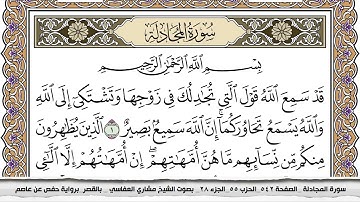 سُورَةُ المُجَادلَةِ
بِسْمِ اللَّهِ الرَّحْمَٰنِ الرَّحِيمِ
قَدْ سَمِعَ اللَّهُ قَوْلَ الَّتِي تُجَادِلُكَ فِي زَوْجِهَا وَتَشْتَكِي إِلَى اللَّهِ
وَاللَّهُ يَسْمَعُ تَحَاوُرَكُمَا إِنَّ اللَّهَ سَمِيعٌ بَصِيرٌ ١ الَّذِينَ يُظَاهِرُونَ
مِنكُم مِّن نِّسَائِهِم مَّا هُنَّ أُمَّهَاتِهِمْ إِنْ أُمَّهَاتُهُمْ إِلَّا الَّٰٓـِٔي
سورة المجادلة _ الصفحة ٥٤٢ _ الحزب ٥٥ _ الجزء ٢٨ _ بصوت الشيخ مشاري العفاسي _ بالقصر _ برواية حفص عن عاصم